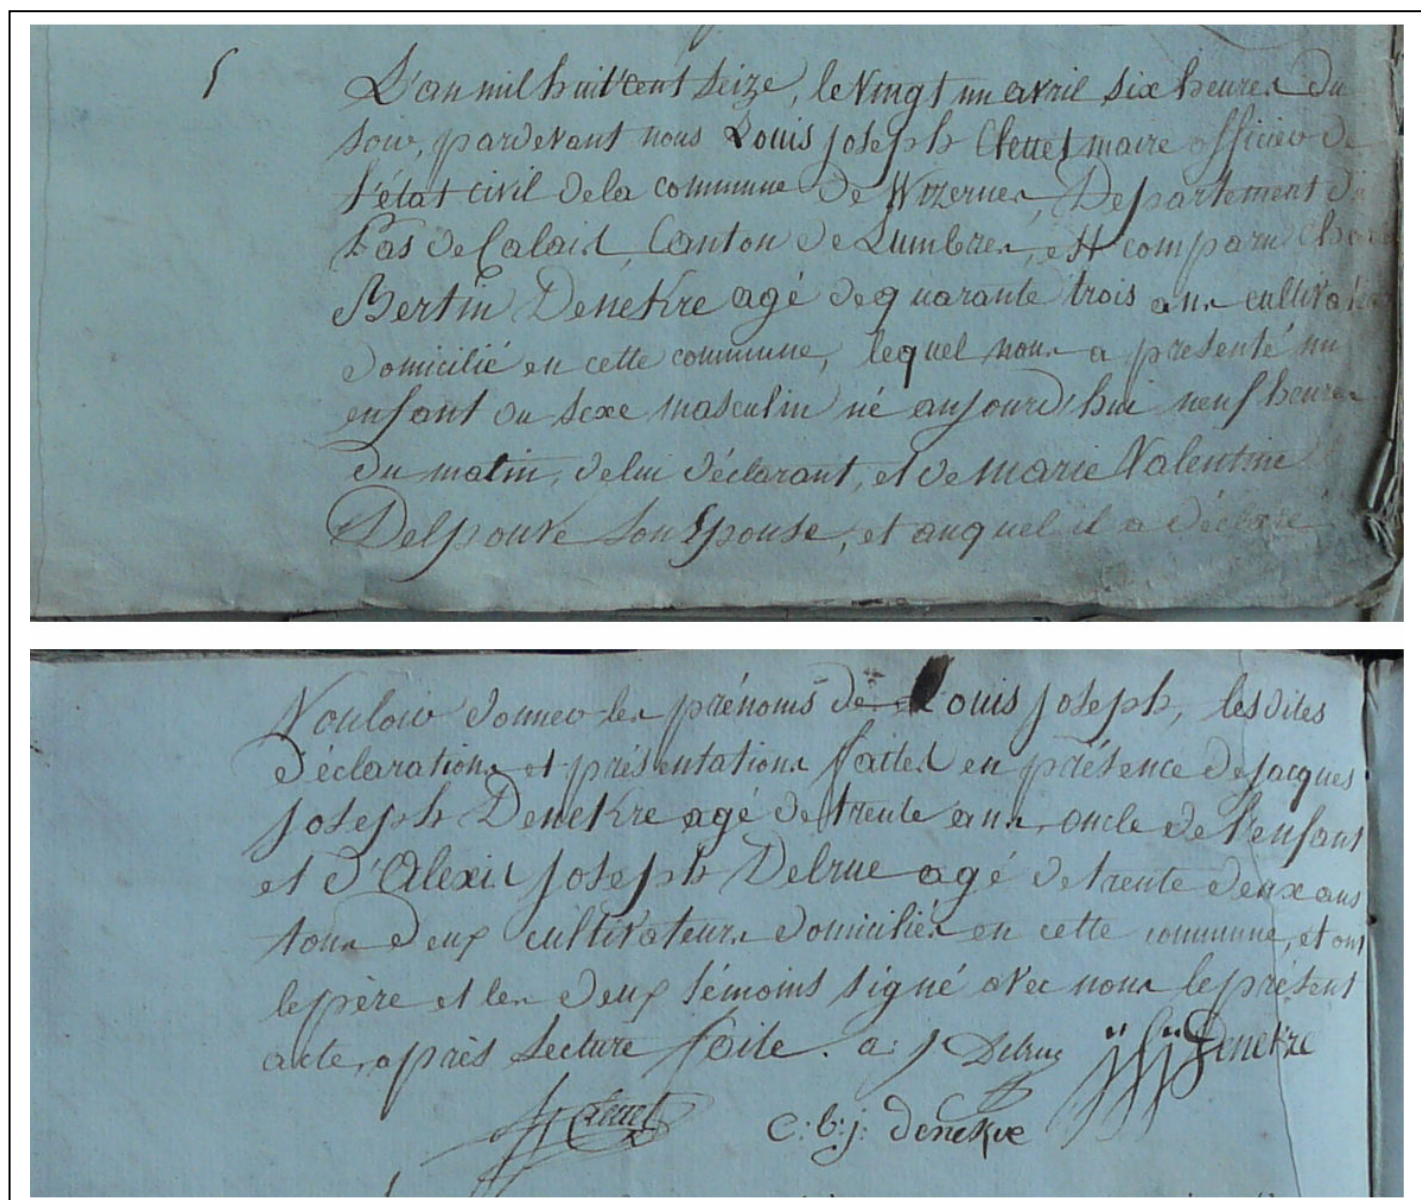 5
L'an mil huit cent seize, le vingt un avril six heures du
soir, pardevant nous Louis joseph Clenet maire officier de
l'état civil de la commune de Wizernes, Departement du
Pas de Calais, Canton de Lumbres, est comparu
Bertin Denekre agé de quarante trois ans cultivateur
domicilié en cette commune, lequel nous a presenté un
enfant du sexe masculin né aujourd'hui neuf heures
du matin, de lui déclarant, et de marie Valentine
Delpouve son Epouse, et auquel il a déclaré
Vouloir donner les prénoms de Louis joseph, les dites
déclarations et présentations faites en présence de jacques
joseph Denekre agé de trente ans, oncle de l'enfant
et d'Alexis joseph Delrue agé de trente deux ans
tous deux cultivateurs domiciliés en cette commune, et ont
le père et les deux témoins signé avec nous le présent
acte, après lecture faite. a: j Delrue j j Denekre
c: b: j: denekre